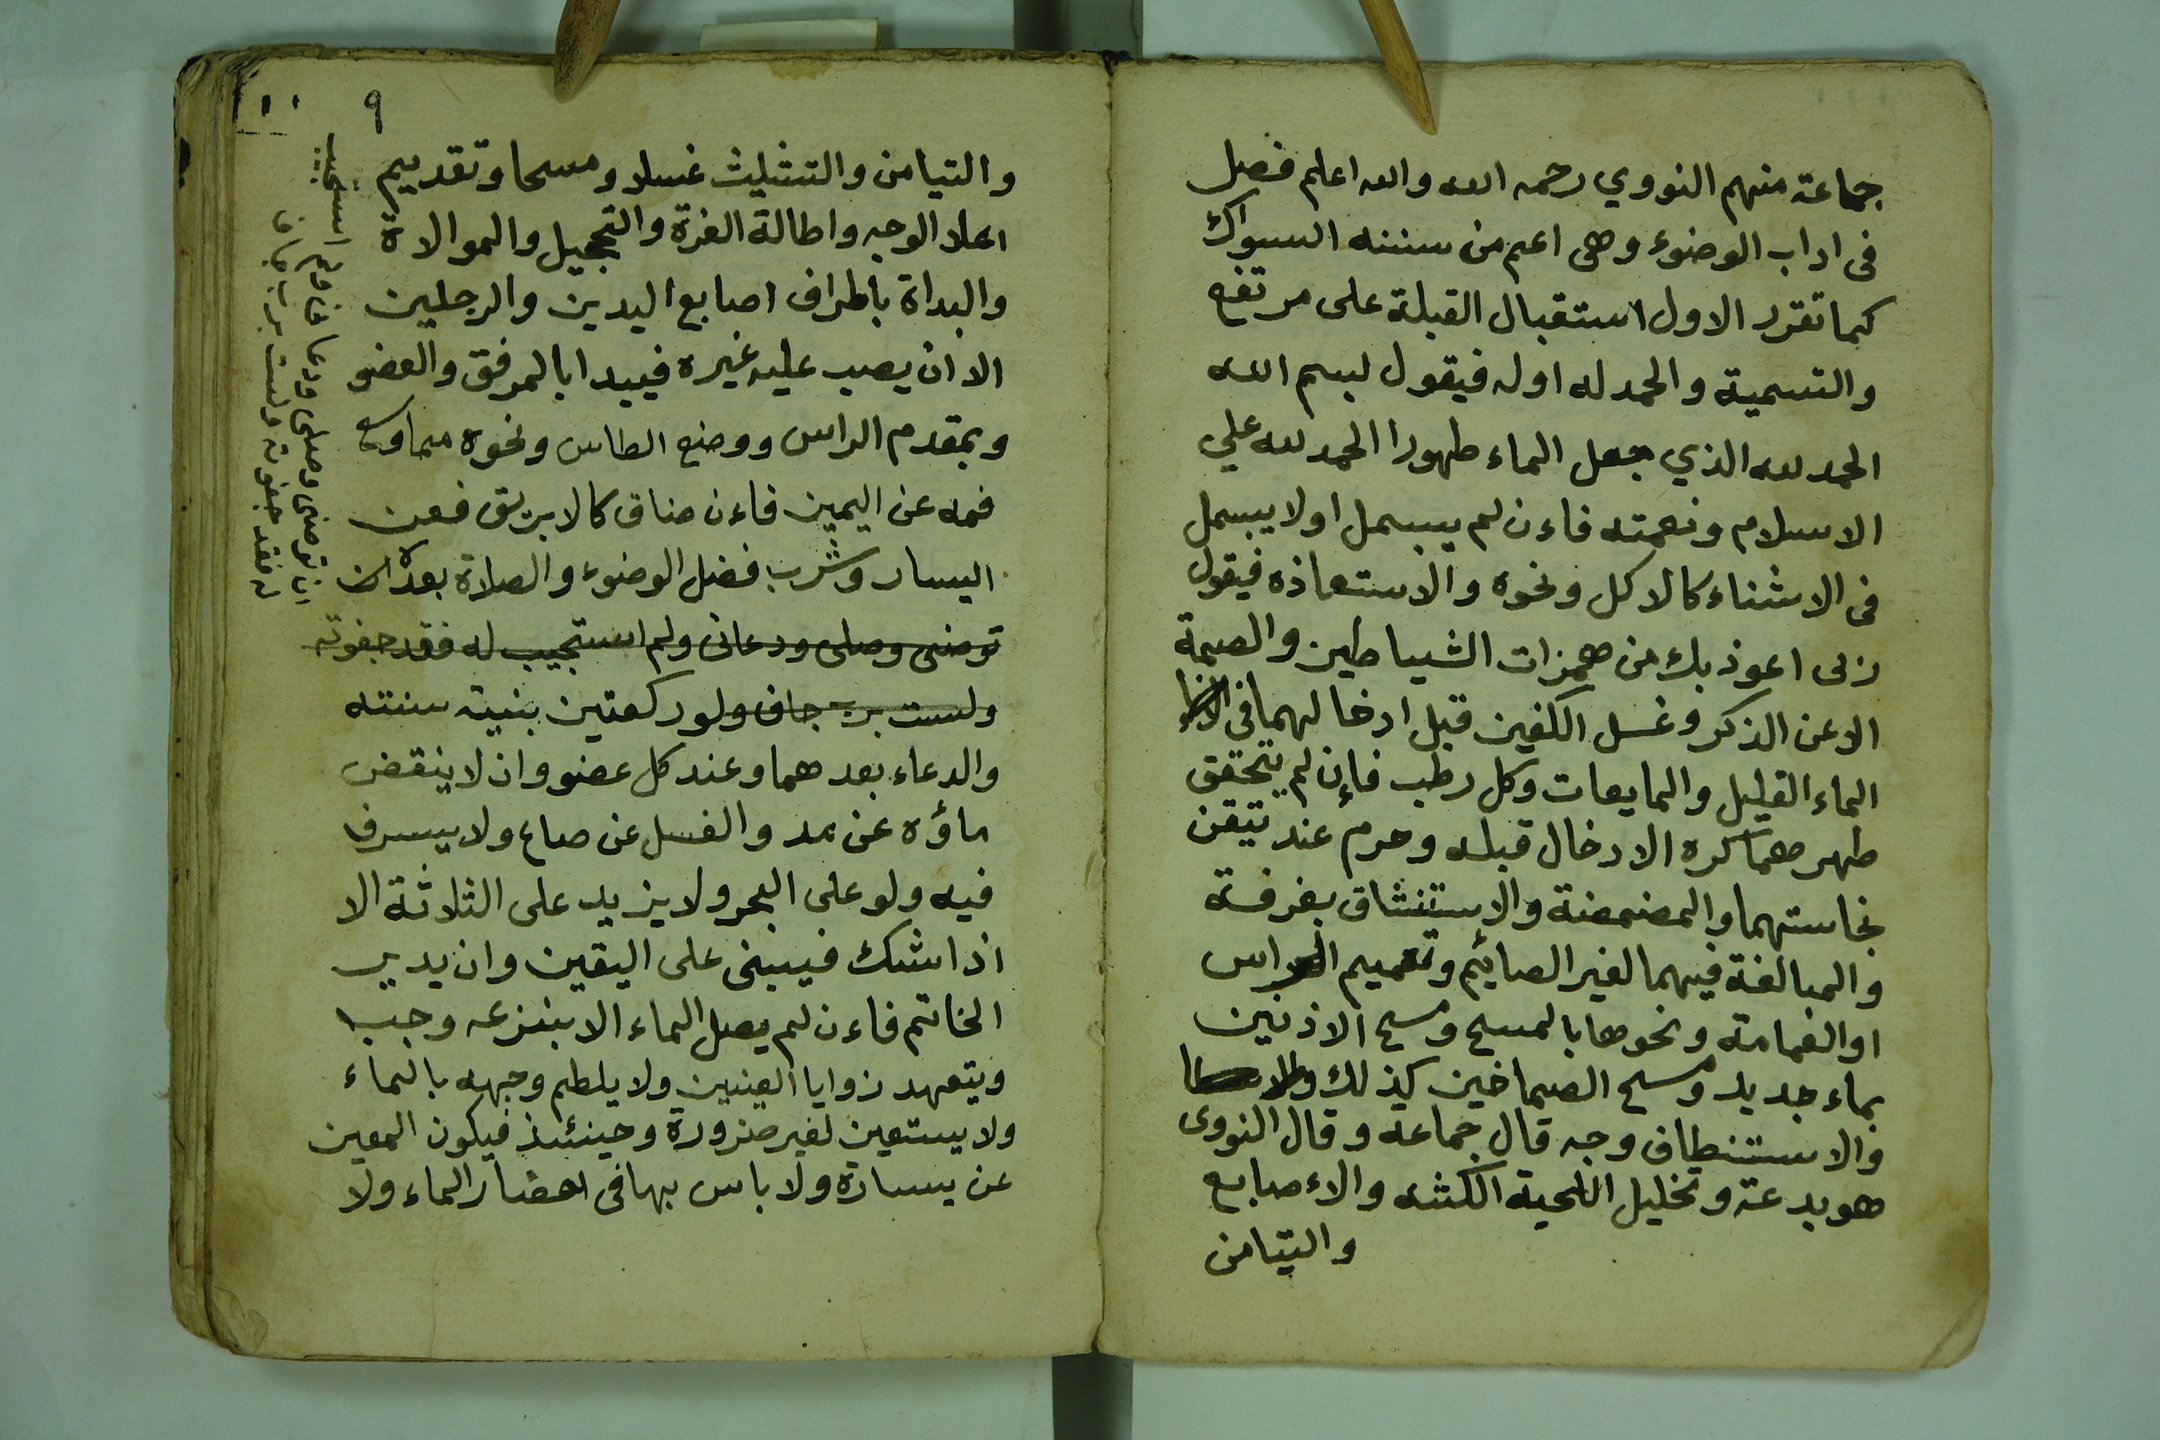 جماعة منهم النووي رحمه الله والله اعلم فصل
فى اداب الوضوء وهى اعم من سننه السواك
كما تقرر الاول استقبال القبلة على مرتفع
والتسمية والحمدله اوله فيقول لبسم الله
الحمد لله الذي جعل الماء طهورا الحمد لله علي
الاسلام ونعمته فاءن لم يبسمل اولا يبسمل
فى الاشناء كالاكل ونحوه والاستعاذه فيقول
ربى اعوذ بك من همزات الشياطين والصمة
الا عن الذكر وغسل الكفين قبل ادخالهما فى
الماء القليل والمايعات وكل رطب فإن لم يتحقق
طهرهما كره الادخال قبله وحرم عند تيقن
نجاستهما والمضمضة والاستنشاق بغرفة
والمبالغة فيهما لغير الصائم وتعميم الراس
او العمامة ونحوها بالمسح ومسح الاذنين
بماء جديد ومسح الصماخين كذلك
والاستنطاف وجه قال جماعة وقال النووى
هو بدعة وتخليل اللحية الكثه والاءصابع
والتيامن
٩
والتيامن والتثليث غسلا ومسحا وتقديم
اعلا الوجه واطالة الغرة والتحجيل والموالاة
والبداة باطراف اصابع اليدين والرجلين
الا ان يصب عليه غيره فيبدا بالمرفق والعضو
وبمقدم الراس ووضع الطاس ونحوه مما وسع
فمه عن اليمين فاءن ضاق كالابريق فعن
اليسار وشرب فضل الوضوء والصلاة بعده ان
توضى وصلى ودعانى ولم استجيب له فقد جفوته
ولست برب جاف ولو ركعتين بنية سنته
والدعاء بعدهما وعند كل عضو وان لا ينقض
ماؤه عن مد والغسل عن صاع ولا يسرف
فيه ولو على البحر ولا يزيد على الثلاثة الا
اذا شك فيبنى على اليقين وان يدير
الخاتم فاءن لم يصل الماء الا بنزعه وجب
ويتعهد زوايا العينين ولا يلطم وجهه بالماء
ولا يستعين لغير ضرورة وحينئذ فيكون المعين
عن يسارة ولا باس بها فى احضار الماء ولا
ان توضى وصلى ودعانى ولم استجيب
له فقد جفوته ولست برب جاف